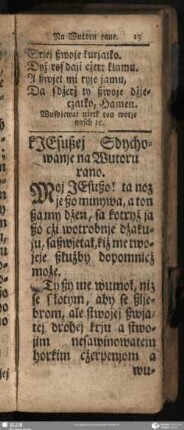 Na Wutoru rano. 17
Sćiej ßwoje kurjatko.
Dyž roſdaji cżert klamu.
A ſwjet mi ryje jamu,
Da ſdżerž ty ßwoje dżie-
cżatko, Hamen.
Wuſpiewaj nietk ton wotże
naſch ꝛc.
k JEſußej Sdycho-
wanje na Wutoru
rano.
Moj JEſußo! ta noz
je ßo minywa, a ton
ßamy dżen, ſa kotryż ja
ßo cżi wotrobnje dżaku-
ju, ſaßwjetak, kiż me two-
jeje ſkużby dopomnicż
može.
Ty ßy me wumoł, niz
ſe ſłotym, aby ſe ßlje-
brom, ale ſtwojej ßwja-
tej drohej krju a ſtwo-
jim neſawinowatem
horkim cżerpenjom a
wu-